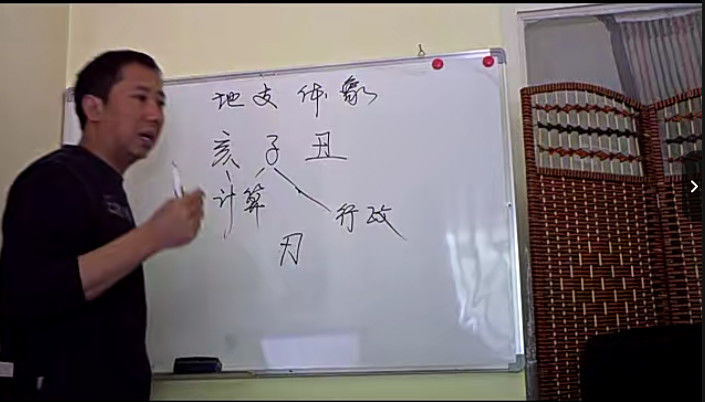 地支体象
亥子丑
计算
行政
刃